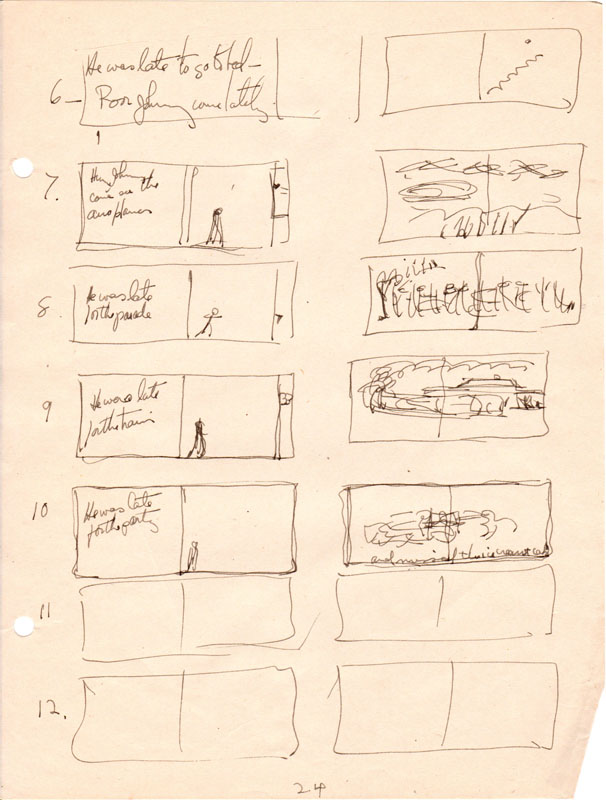 6 – He was late to go to bed –
Poor Johnny come lately.
7. Hurry Johnny
come see the
aeroplanes
8. He was late
for the parade
9 He was late
for the train
10 He was late
for the party
and
11
12.
24